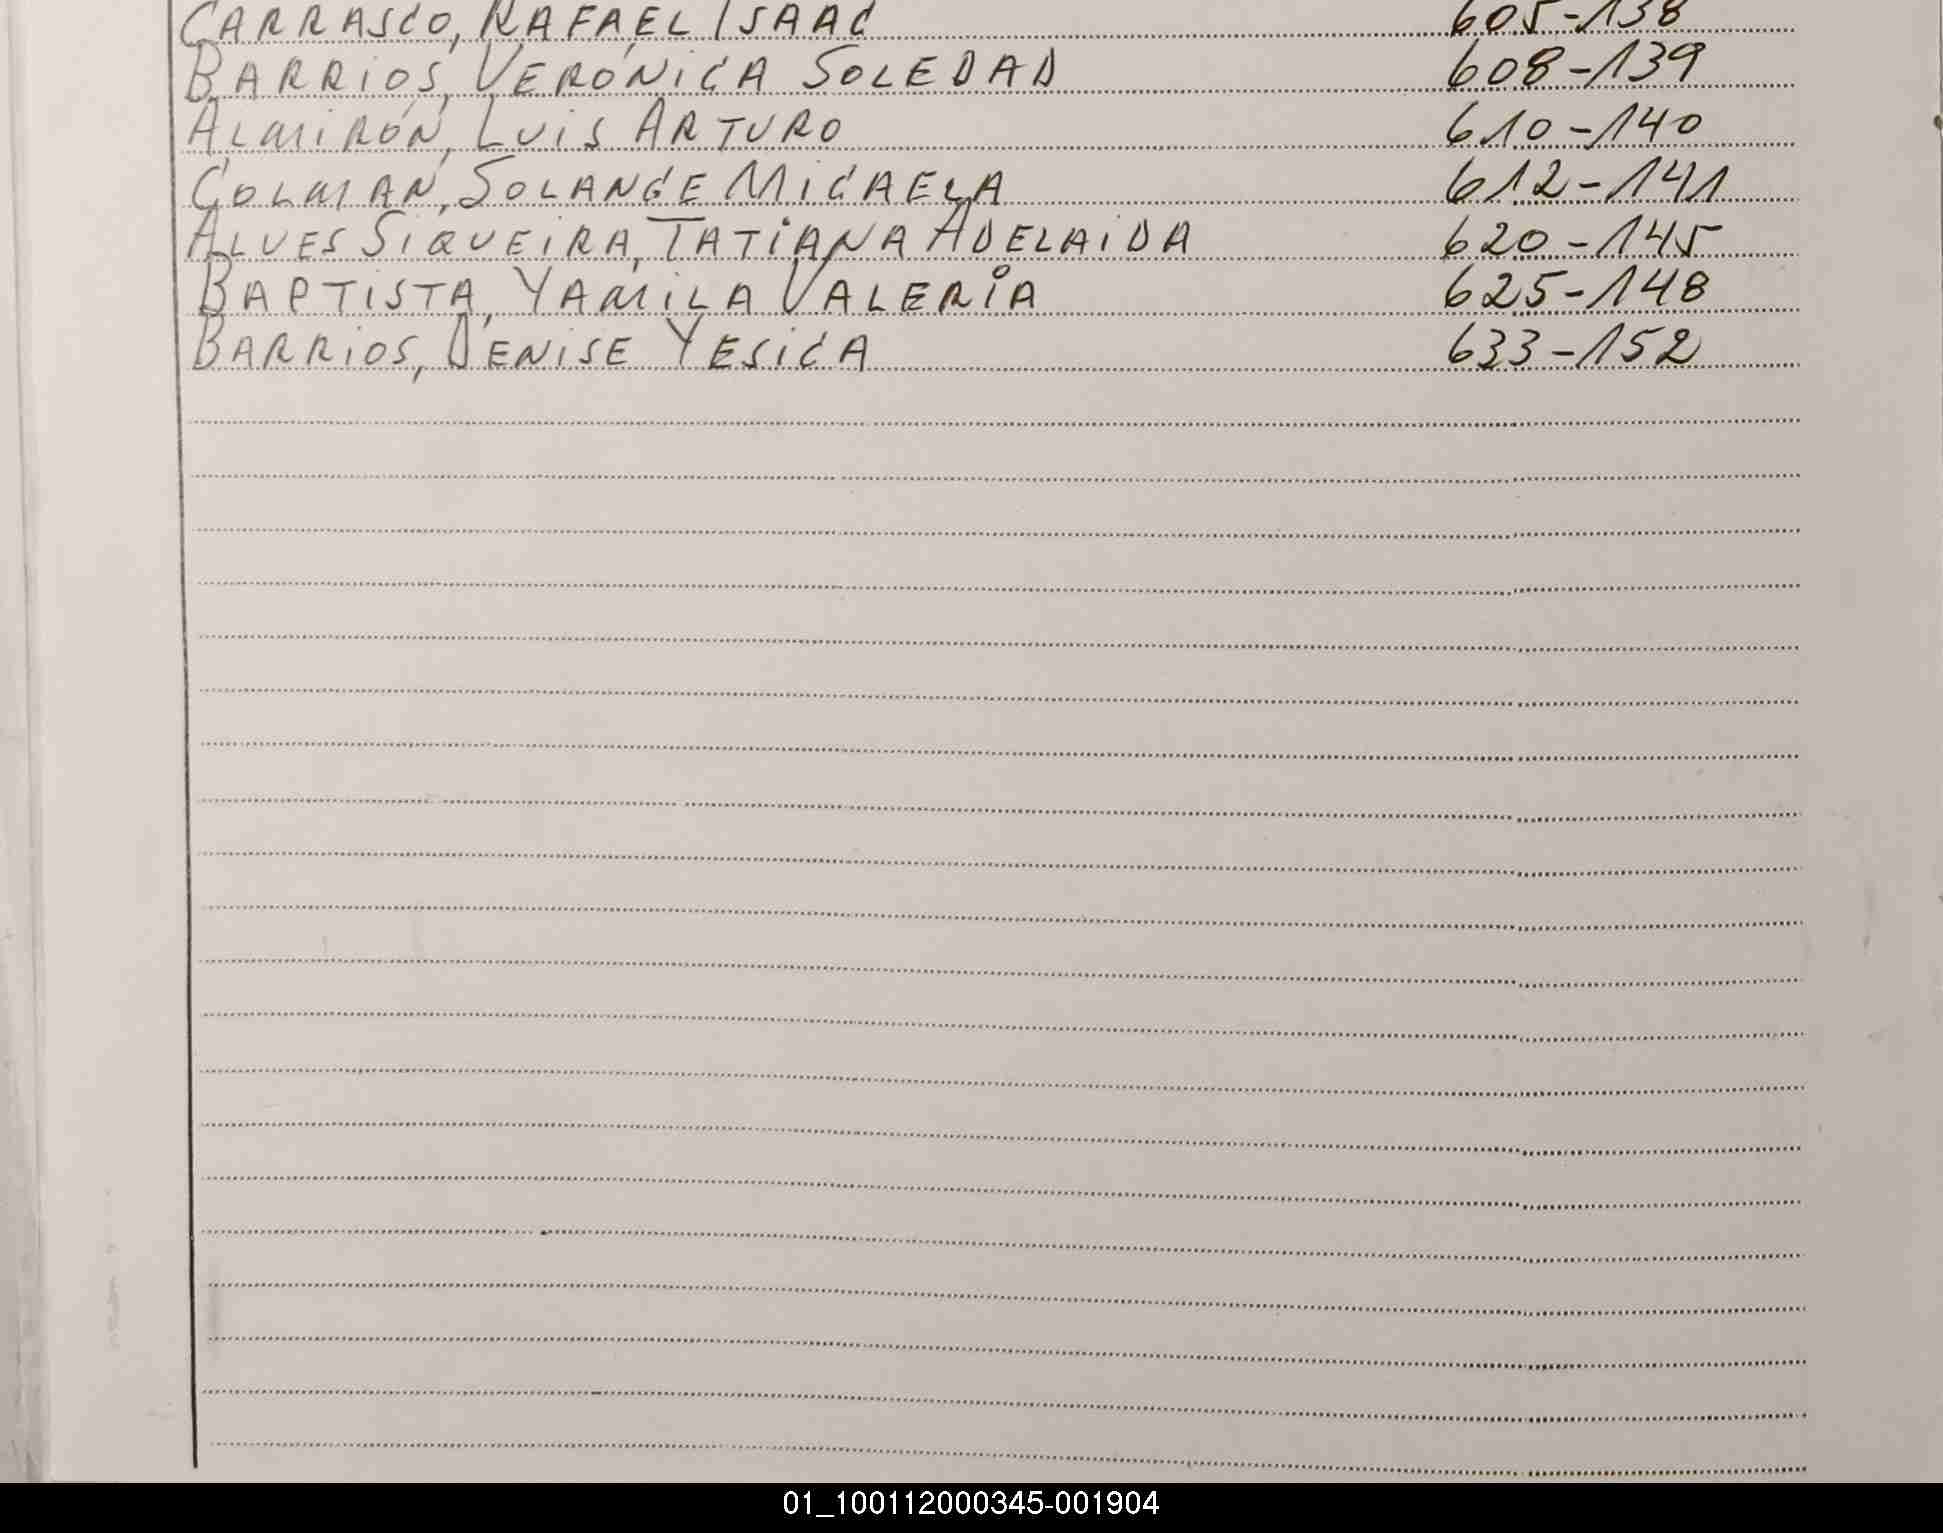 CARRASCO, RAFAEL ISAAC 605-138
BARRIOS, VERÓNICA SOLEDAD 608-139
ALMIRÓN, LUIS ARTURO 610-140
COLMAN, SOLANGE MICAELA 612-141
ALVES SIQUEIRA, TATIANA ADELAIDA 620-145
BAPTISTA, YAMILA VALERIA 625-148
BARRIOS, DENISE YESICA 633-152
01_100112000345-001904